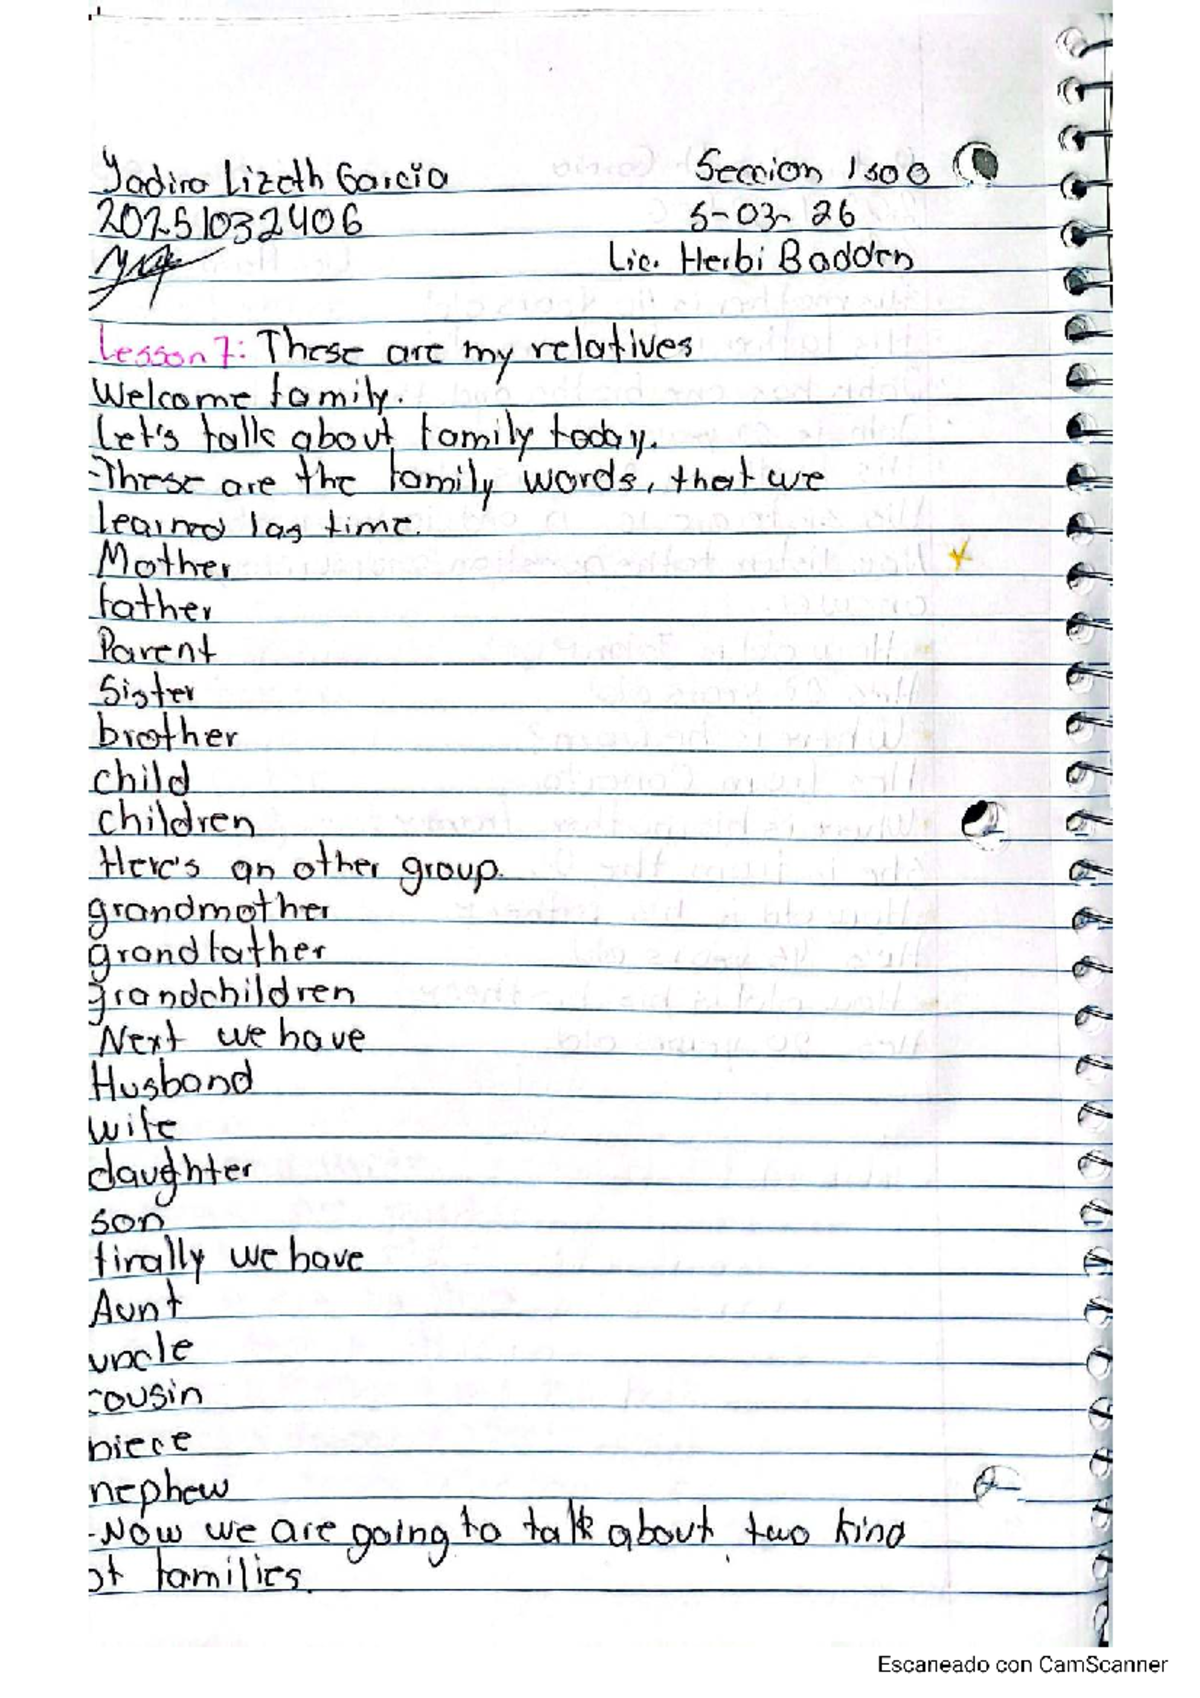 Yadira Lizeth García Seccion 1300
20251032406 5-03-26
Lic. Herbi Badden
Lesson 7: These are my relatives
Welcome family.
Let's talk about family today.
-These are the family words, that we
learned las time.
Mother
father
Parent
Sister
brother
child
children
Here's an other group.
grandmother
grandfather
grandchildren
Next we have
Husband
wife
daughter
son
finally we have
Aunt
uncle
cousin
niece
nephew
-Now we are going to talk about two kind
of families.
Escaneado con CamScanner